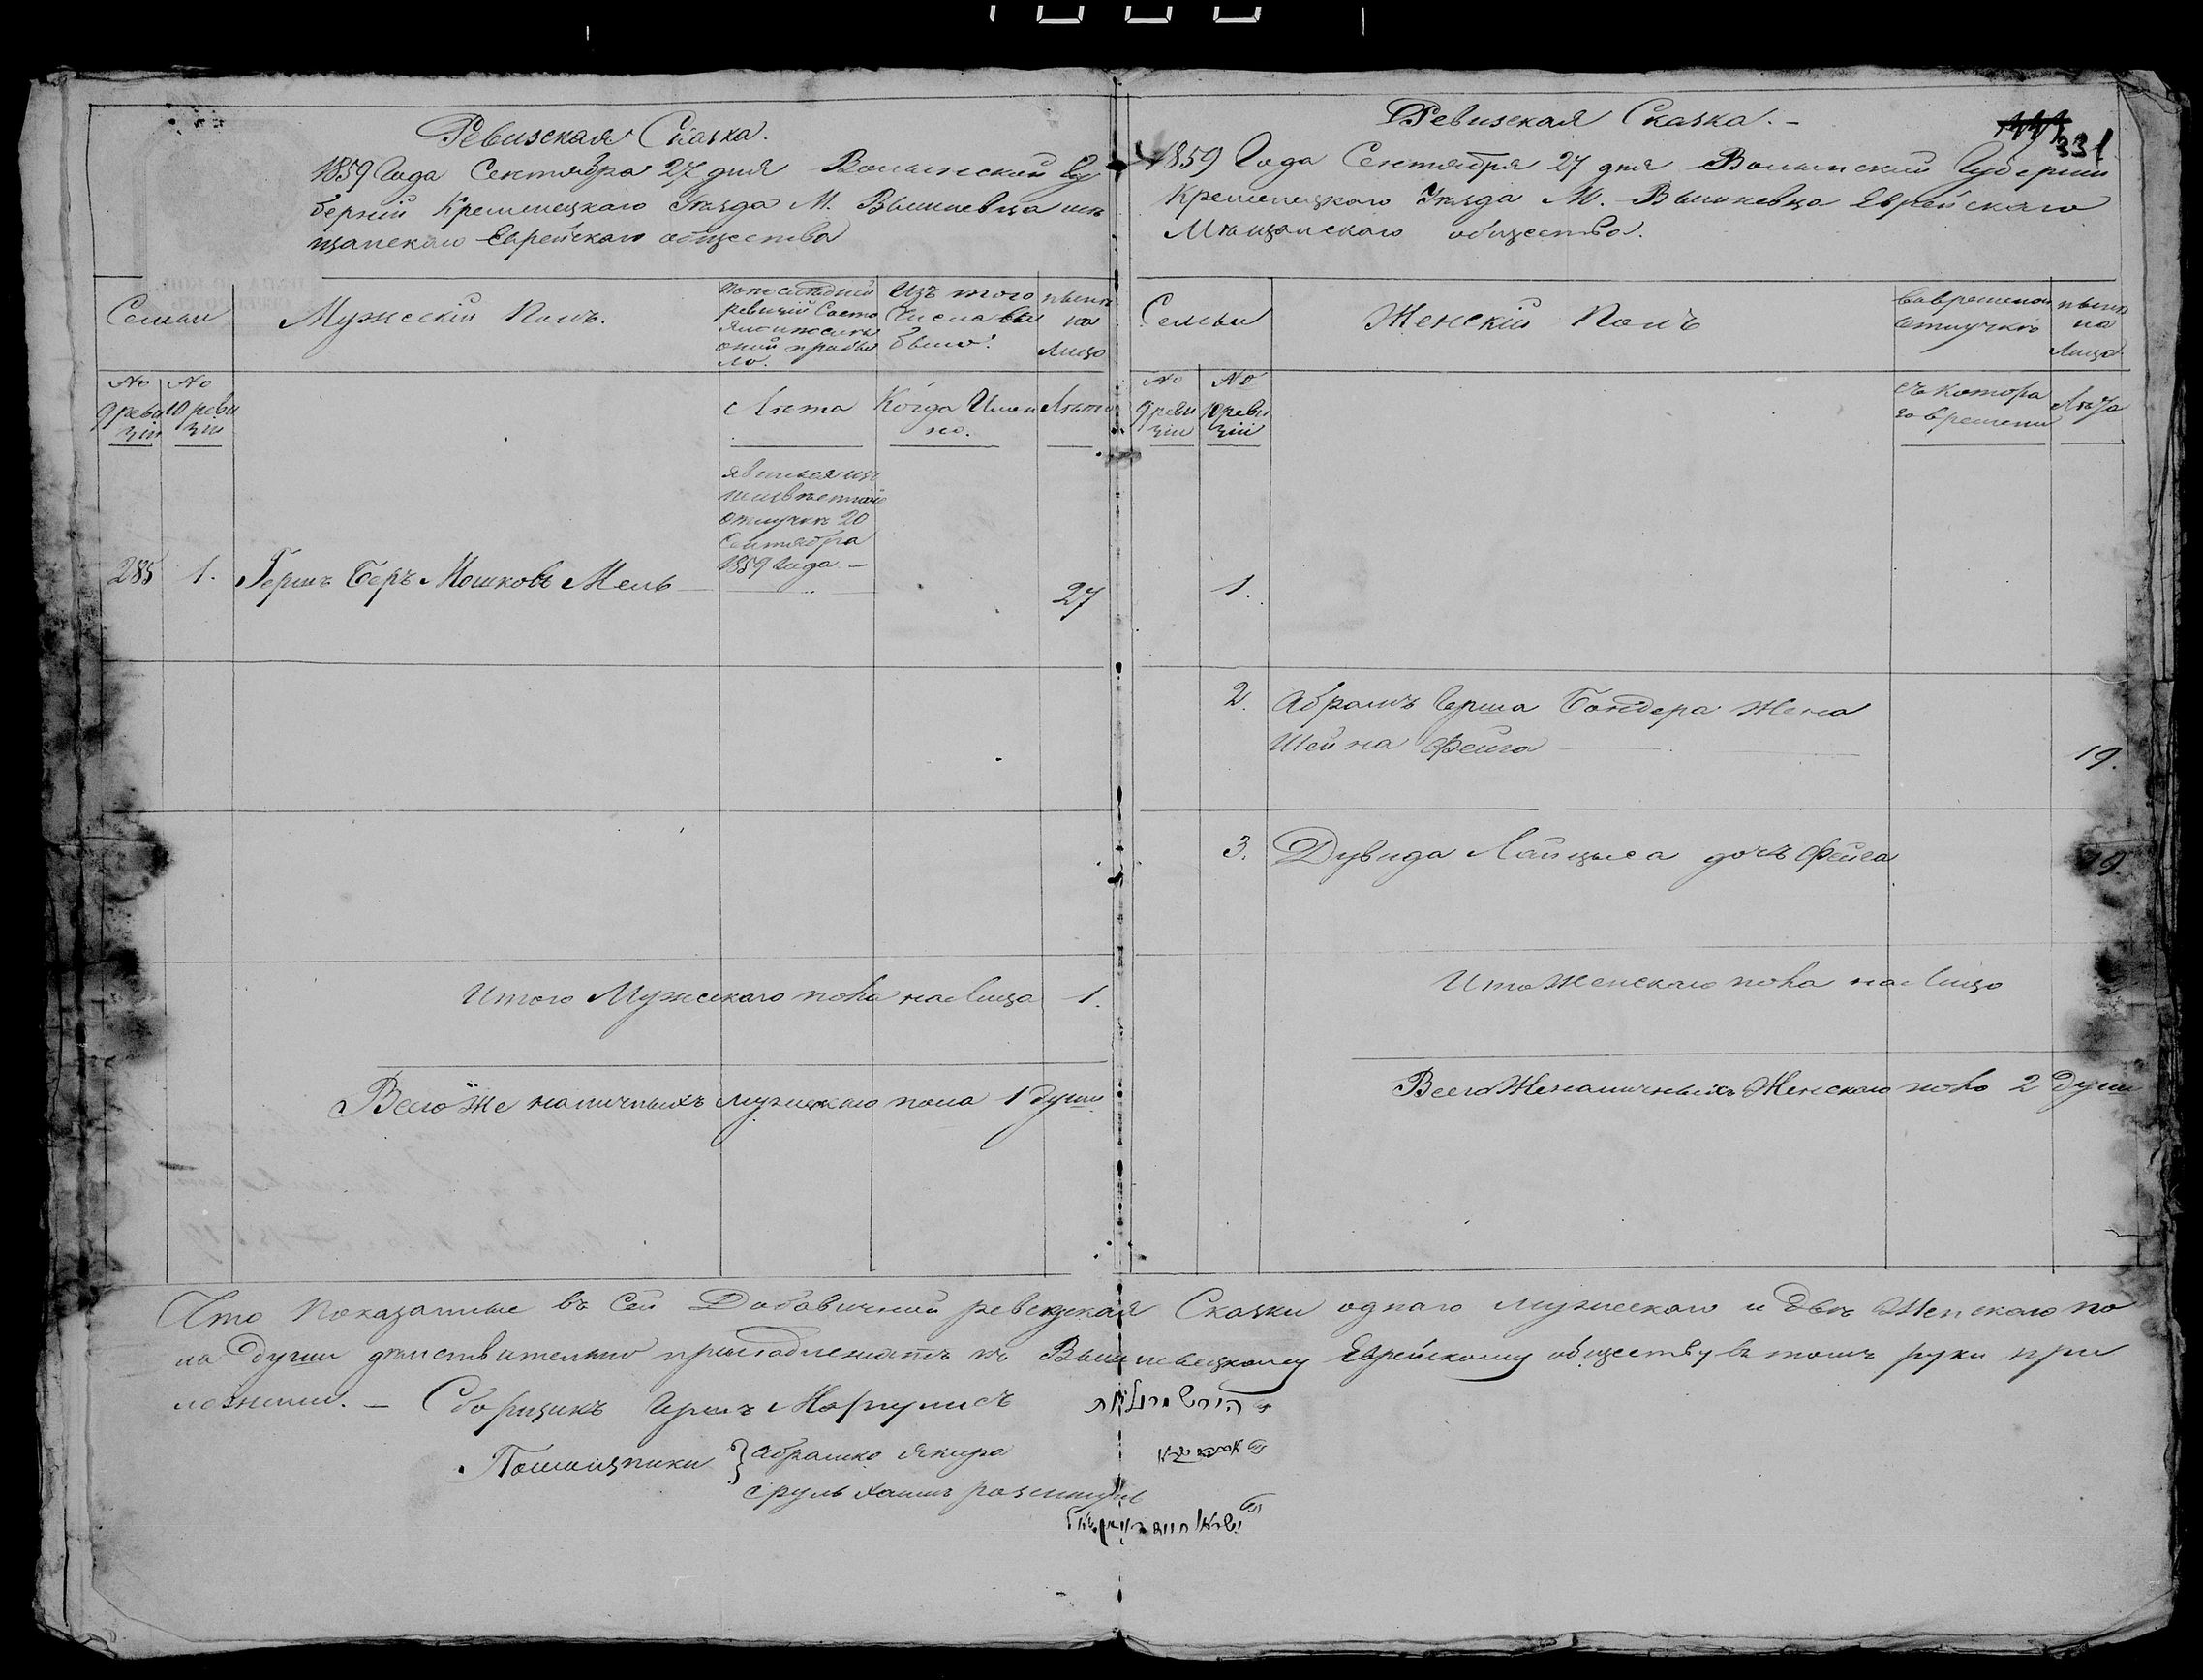 Ревизская Сказка.
1859 Года Сентября 27 дня Волынской Гу
берніи Кременецкаго Уѣзда М. Вишневца мѣ
щанскаго Еврейскаго общества
Семьи
Мужескій Полъ.
По последней
ревизіи Состо
яло и после
оной прибы
ло.
Изъ того
Числа вы
было.
нынѣ
на
Лицо
№
9 реви
зіи
№
10 реви
зіи
Лета
Когда Имен
но.
Лѣта
явился изъ
отлучки 20
Сентября
1859 Года —
285 1. Гершъ Беръ Мошковъ Мель — 27
Итого Мужескаго пола на Лицо 1.
Всего же наличныхъ мужескаго пола 1 душа
Ревизская Сказка. —
331
1859 Года Сентября 27 дня Волынской Губерніи
Кременецкаго Уѣзда М. Вишневца Еврейскаго
Мѣщанскаго общества.
Семьи
Женскій Полъ
Вовременой
отлучкѣ
нынѣ
на
Лицо
№
9 реви
зіи
№
10 реви
зіи
съ котора
го времени
Лѣта
1.
2. Абрамъ Герша Бондера Жена
Шейна Фейга — 19.
3. Дувида Лайцыса дочь Фейга 19.
Ито Женскаго пола на Лицо 2
Всего Же наличныхъ Женскаго пола 2 Души
Что Показанные въ Сей Добавичной ревизская Сказки однаго мужескаго и двѣ Женскаго по
ла души действительно принадлежатъ къ Вишневецкому Еврейскому обществу въ томъ руки при
ложили. — Сборщикъ Гершъ Маргулисъ
Помощники } Абрамко Якира
Сруль Хаимъ
ישראל חיים